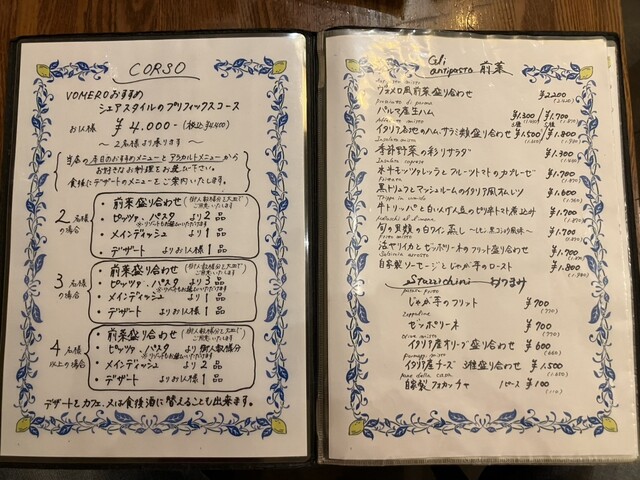 CORSO
VOMEROおすすめ
シェアスタイルのプリフィックスコース
お1人様 ¥4,000- (税込 ¥4,400)
〜2名様より承ります〜
当店の本日のおすすめメニューとアラカルトメニューから
お好きなお料理をお選び下さい。
食後にデザートのメニューをご案内いたします。
2名様の場合
・前菜盛り合わせ
・ピッツァ、パスタ より2品
・メインディッシュ より1品
・デザート よりお1人様1品
3名様の場合
・前菜盛り合わせ
・ピッツァ、パスタ より3品
・メインディッシュ より1品
・デザート よりお1人様1品
4名様以上の場合
・前菜盛り合わせ
・ピッツァ、パスタ より御人数様分
・メインディッシュ より2品
・デザート よりお1人様1品
デザートをカフェ、又は食後酒に替えることも出来ます。
Gli antipasto 前菜
ヴォメロ風前菜盛り合わせ ¥2200 (2,420)
パルマ産生ハム ¥1,300/¥1,700
イタリア各地のハム、サラミ類盛り合わせ ¥1,500/¥1,800
季節野菜の彩りサラダ ¥1,300
水牛モッツァレッラとフルーツトマトのカプレーゼ ¥1,700
黒トリュフとマッシュルームのイタリア風オムレツ ¥1,600
Trippa in umido
牛トリッパと白いんげん豆のピリ辛トマト煮込み ¥1,700
旬の貝類の白ワイン蒸し ¥1,700
活ヤリイカとゼッポリーネのフリット盛り合わせ ¥1,700
自家製ソーセージとじゃが芋のロースト ¥1,800
Stuzzichini おつまみ
じゃが芋のフリット ¥700 (770)
ゼッポリーネ ¥700 (770)
イタリア産オリーブ盛り合わせ ¥600 (660)
イタリア産チーズ 3種盛り合わせ ¥1,500 (1,650)
pane della casa
自家製フォカッチャ 1ピース ¥100 (110)